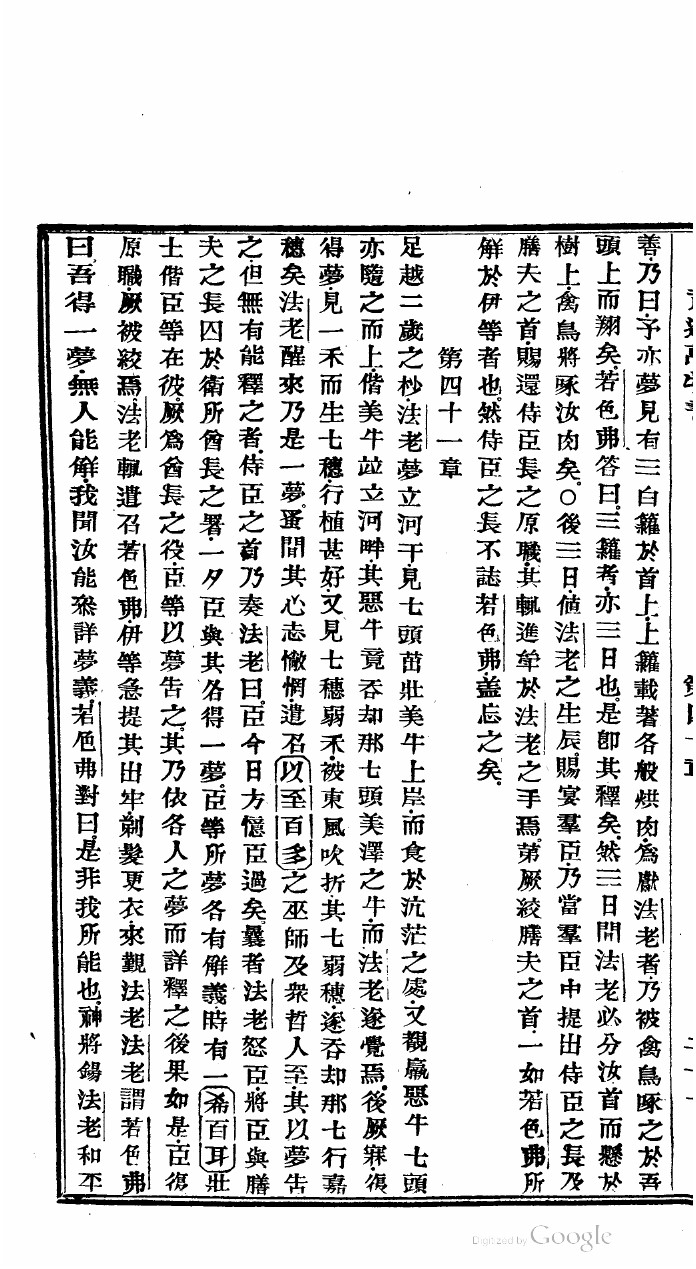 善乃曰予亦夢見有三白籮於首上上籮載著各般烘肉為獻法老者乃被禽鳥啄之於吾
頭上而翔矣若色弗答曰三籮者亦三日也是卽其釋矣然三日間法老必分汝首而懸於
樹上禽鳥將啄汝肉矣○後三日値法老之生辰賜宴羣臣乃當羣臣中提出侍臣之長及
膳夫之首賜還侍臣長之原職其輒進斝於法老之手焉第厥絞膳夫之首一如若色弗所
解於伊等者也然侍臣之長不誌若色弗盖忘之矣
第四十一章
足越二歲之杪法老夢立河干見七頭茁壯美牛上岸而食於沆茫之處又觀羸惡牛七頭
亦隨之而上偕美牛竝立河畔其惡牛竟吞却那七頭美澤之牛而法老遂覺焉後厥寐復
得夢見一禾而生七穗行植甚好又見七穗弱禾被東風吹折其七弱穗遂吞却那七行嘉
穗矣法老醒來乃是一夢蚤間其心志懒惘遣召以至百多之巫師及衆哲人至其以夢告
之但無有能釋之者侍臣之首乃奏法老曰臣今日方憶臣過矣曩者法老怒臣將臣與膳
夫之長囚於衛所酋長之署一夕臣與其各得一夢臣等所夢各有解義時有一希百耳壯
士偕臣等在彼厥為酋長之役臣等以夢告之其乃依各人之夢而詳釋之後果如是臣復
原職厥被絞焉法老輒遣召若色弗伊等急提其出牢剃髮更衣來覲法老法老謂若色弗
曰吾得一夢無人能解我聞汝能叅詳夢義若色弗對曰是非我所能也神將錫法老和平
Digitized by Google